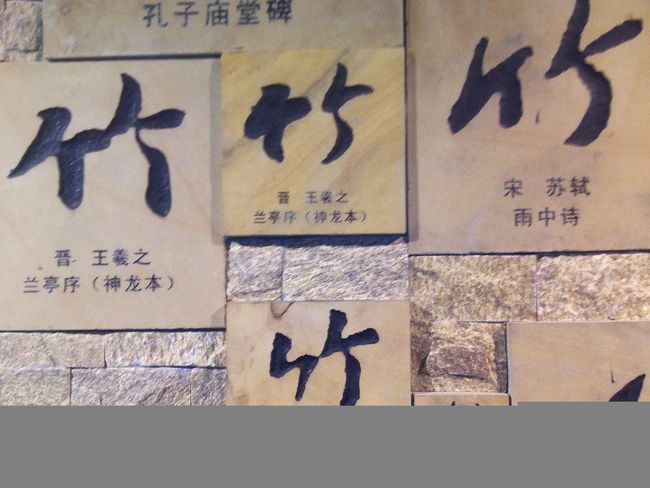 孔子庙堂碑
竹
晋 王羲之
兰亭序（神龙本）
竹
晋 王羲之
兰亭序（神龙本）
竹
宋 苏轼
雨中诗
竹